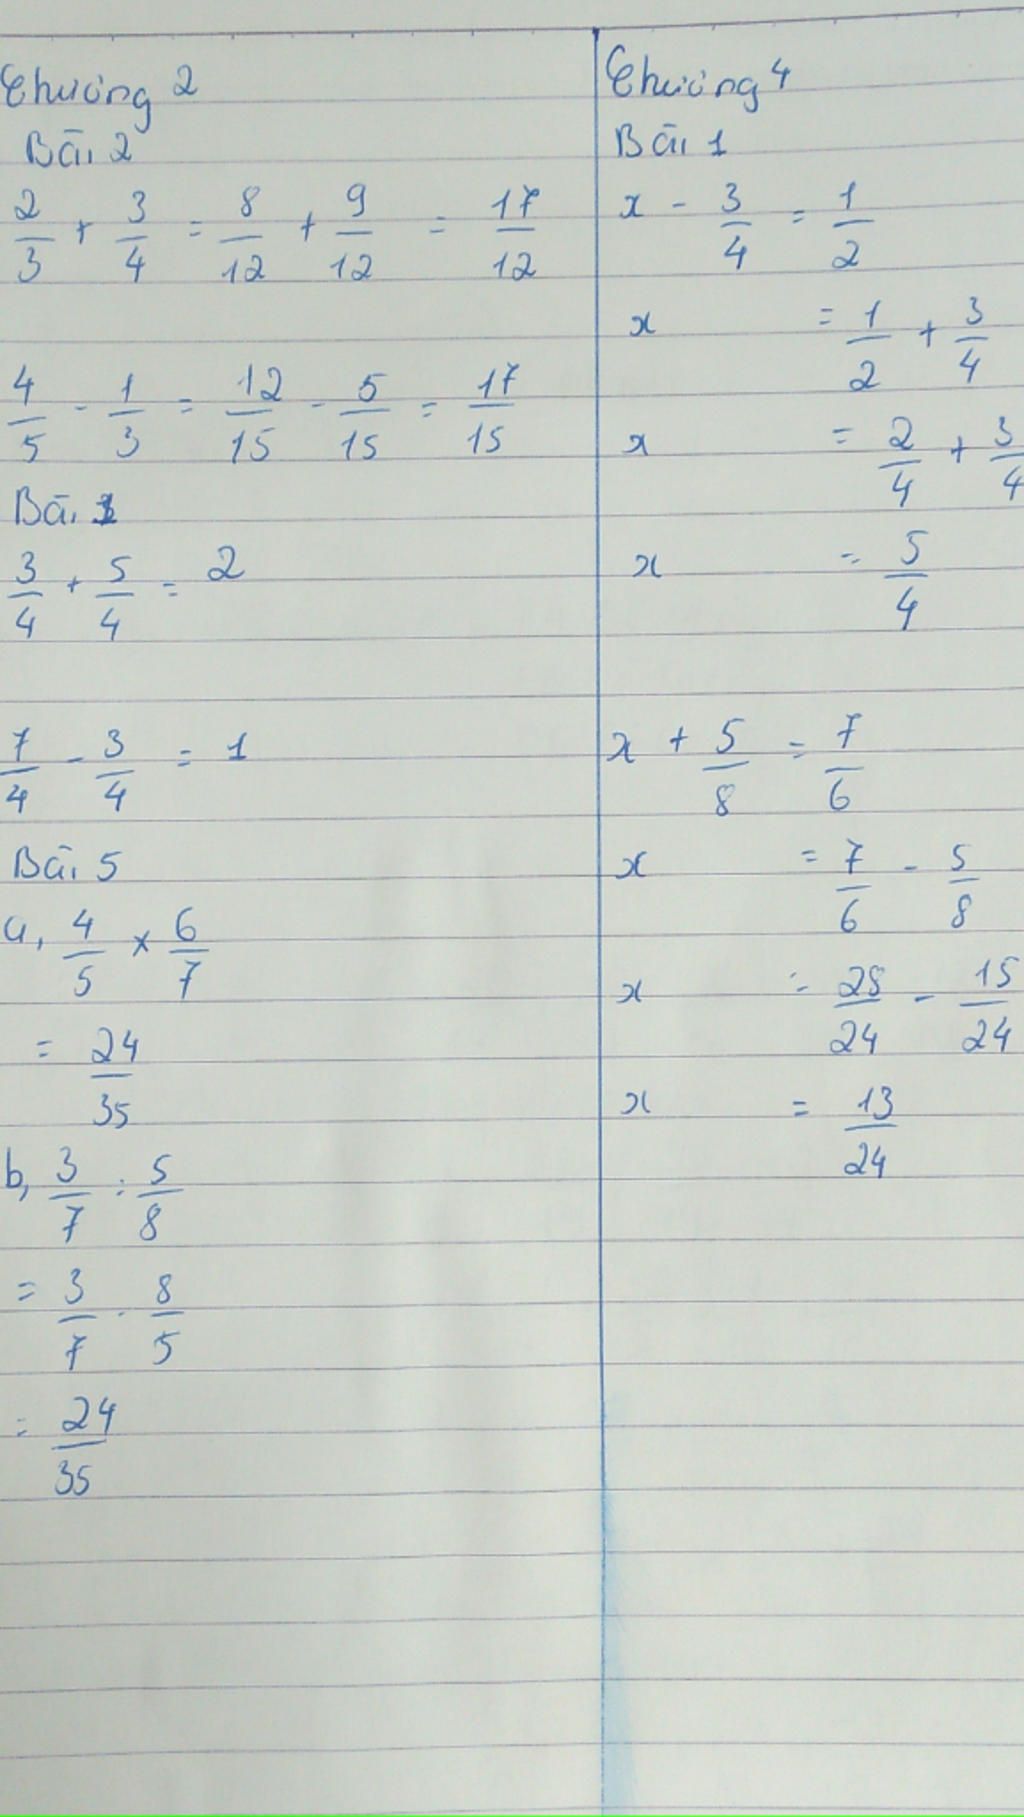 Chương 2
Bài 2
2/3 + 3/4 = 8/12 + 9/12 = 17/12
4/5 - 1/3 = 12/15 - 5/15 = 17/15
Bài 1
3/4 + 5/4 = 2
7/4 - 3/4 = 1
Bài 5
a, 4/5 × 6/7
= 24/35
b, 3/7 : 5/8
= 3/7 . 8/5
= 24/35
Chương 4
Bài 1
x - 3/4 = 1/2
x = 1/2 + 3/4
x = 2/4 + 3/4
x = 5/4
x + 5/8 = 7/6
x = 7/6 - 5/8
x = 28/24 - 15/24
x = 13/24